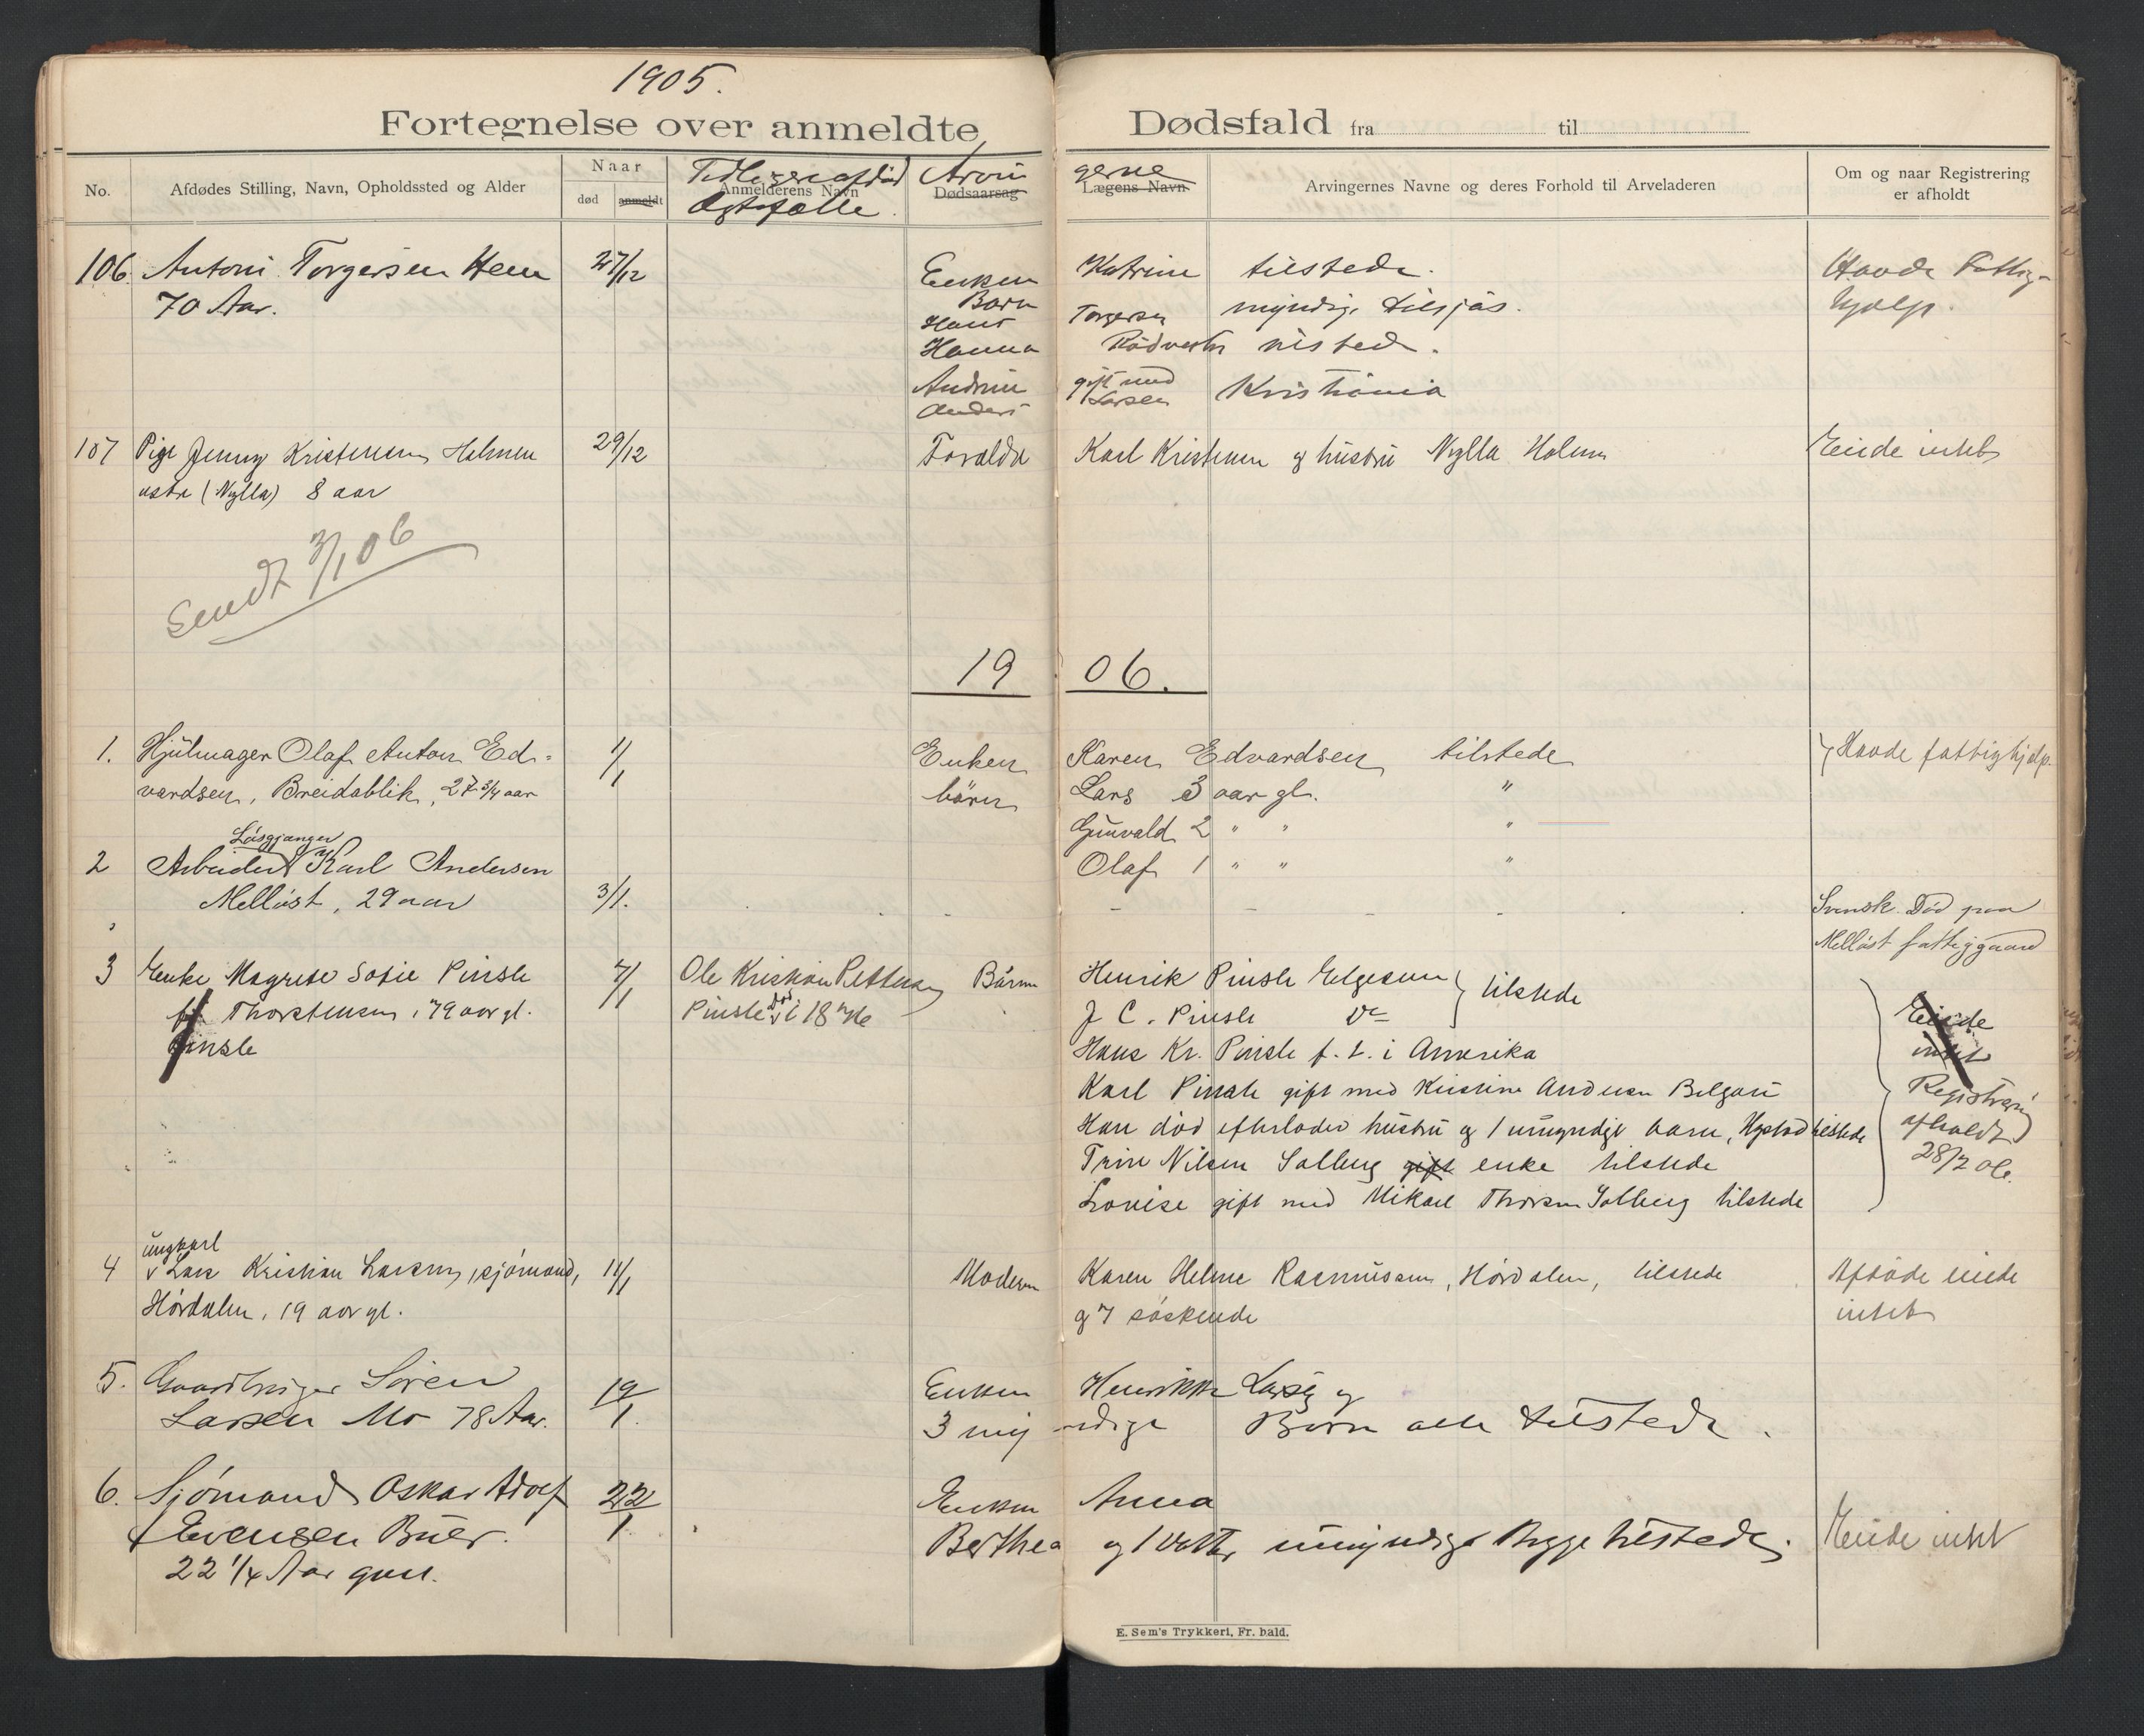 1905.
Fortegnelse over anmeldte Dødsfald fra til
No.
Afdødes Stilling, Navn, Opholdssted og Alder
Naar
død anmeldt
Anmelderens Navn
Tidligere afdød
Ægtefælle.
Arvin gerne
Dødsaarsag
Lægens Navn
Arvingernes Navne og deres Forhold til Arveladeren
Om og naar Registrering
er afholdt
106. Antoni Torgersen Hem 27/12 Enken Katrine tilstede. Havde Fattig-
70 Aar. Børn
Hans Torgersen myndig tilsjøs. hjælp.
Hanna Rødvester tilstede.
Andrine gift med Kristiania
Anders Larsen
107 Pige Jenny Kristensen Holmen 29/12 Forældre Karl Kristensen og hustru Nylla Holmen Eiede intet
østre (Nylla) 8 aar
Sendt 3/1 06
19 06.
1. Hjulmager Olaf Anton Ed- 1/1 Enken Karen Edvardsen tilstede Havde fattighjælp.
vardsen, Breidablik, 27 3/4 aar børn Lars 3 aar gl. "
Gunvald 2 " " "
Løsgjænger
2 Arbeider Karl Andersen Olaf 1 " " "
Melløst, 29 aar 3/1. Svensk. Død paa
Melløst fattiggaard
3 Enke Magrete Sofie Pinsle 7/1 Ole Kristian Pettersen Børn Henrik Pinsle Helgesen } tilstede
Thorstensen, 79 aar gl. Pinsle død i 18
J C. Pinsle do Eiede
Pinsle Hans Kr. Pinsle f. t. i Amerika intet
Karl Pinsle gift med Kristine Andersen Registrering
Han død efterlader hustru og 1 umyndigt barn, tilstede afholdt
Trine Nilsen Solberg gift enke tilstede 28/2 06.
Lovise gift med Mikael Thorsen Solberg tilstede
ungkarl
4 Lars Kristian Larsen, sjømand, 11/1 Moderen Karen Helene Rasmussen, Hørdalen, tilstede Afdøde eiede
Hørdalen, 19 aar gl. og 7 søskende intet
5. Gaardbruger Søren 19/1. Enken Henrikke Larsen og
Larsen Mo 78 Aar. 3 myndige Børn alle tilstede.
6. Sjømand Oskar Adolf 22/1 Enken Anna
Evensen Buer. Berthea og 1 datter umyndige Begge tilstede. Eiede intet
22 1/4 Aar gml.
E. Sem's Trykkeri, Fr. hald.